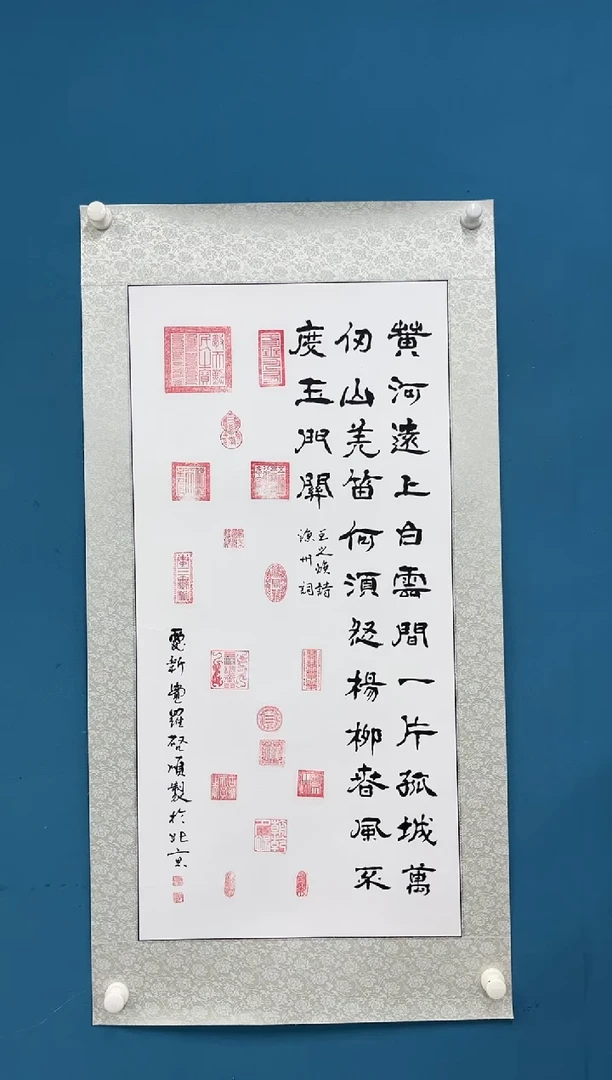 黄河遠上白雲間一片孤城萬
仞山羌笛何須怨楊柳春風不
度玉門關
王之渙詩
涼州詞
愛新覺羅啓順製於北京